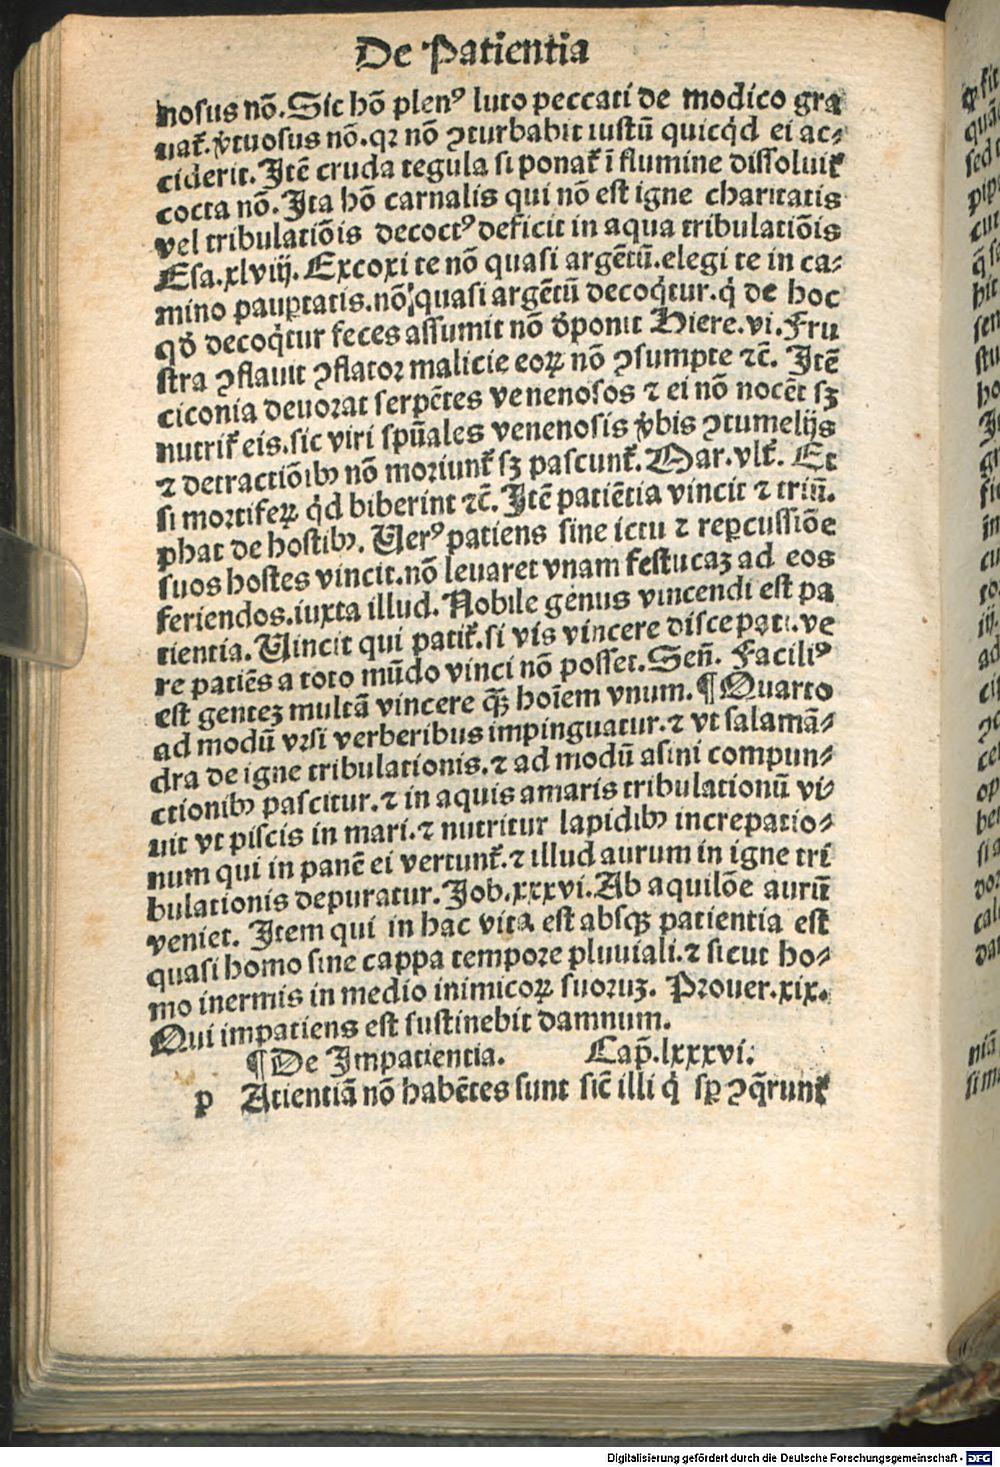 De Patientia
nosus nō. Sic hō plenꝰ luto peccati de modico gra
uat᷑. v̓tuosus nō. qꝛ nō ꝯturbabit iustū quicq̇d ei ac⸗
ciderit. Itē cruda tegula si ponat᷑ ī flumine dissoluit᷑
cocta nō. Ita hō carnalis qui nō est igne charitatis
vel tribulatiōis decoctꝰ deficit in aqua tribulatiōis
Esa. xlviij. Excoxi te nō quasi argētū. elegi te in ca⸗
mino pauꝑtatis. nō quasi argētū decoq̇tur. q̇ de hoc
qd̓ decoq̇tur feces assumit nō d̓ponit Hiere. vi. Fru
stra ꝯflauit ꝯflator malicie eoꝝ nō ꝯsumpte ⁊c̄. Itē
ciconia deuorat serpētes venenosos ⁊ ei nō nocēt sꝫ
nutrit᷑ eis. sic viri spūales venenosis v̓bis ꝯtumelijs
⁊ detractiōibꝫ nō moriunt᷑ sꝫ pascunt᷑. Mar. vlt᷑. Et
si mortifeꝝ q̇d biberint ⁊c̄. Itē patiētia vincit ⁊ triū⸗
phat de hostibꝫ. Uerꝰ patiens sine ictu ⁊ reꝑcussiōe
suos hostes vincit. nō leuaret vnam festucaꝫ ad eos
feriendos. iuxta illud. Nobile genus vincendi est pa
tientia. Uincit qui patit᷑. si vis vincere disce pati. ve
re patiēs a toto mūdo vinci nō posset. Señ. Faciliꝰ
est genteꝫ multā vincere qꝫ̄ hoīem vnum. ¶ Quarto
ad modū vrsi verberibus impinguatur. ⁊ vt salamā⸗
dra de igne tribulationis. ⁊ ad modū asini compun⸗
ctionibꝫ pascitur. ⁊ in aquis amaris tribulationū vi⸗
uit vt piscis in mari. ⁊ nutritur lapidibꝫ increpatio⸗
num qui in panē ei vertunt᷑. ⁊ illud aurum in igne tri
bulationis depuratur. Job. xxxvi. Ab aquilōe aurū
veniet. Item qui in hac vita est absqꝫ patientia est
quasi homo sine cappa tempore pluuiali. ⁊ sicut ho⸗
mo inermis in medio inimicoꝝ suoruꝫ. Prouer. xix.
Qui impatiens est sustinebit damnum.
¶ De Impatientia. Cap̄. lxxxvi.
p Atientiā nō habētes sunt sic̄ illi q̇ sꝑ ꝯq̄runt᷑
Digitalisierung gefördert durch die Deutsche Forschungsgemeinschaft - DFG